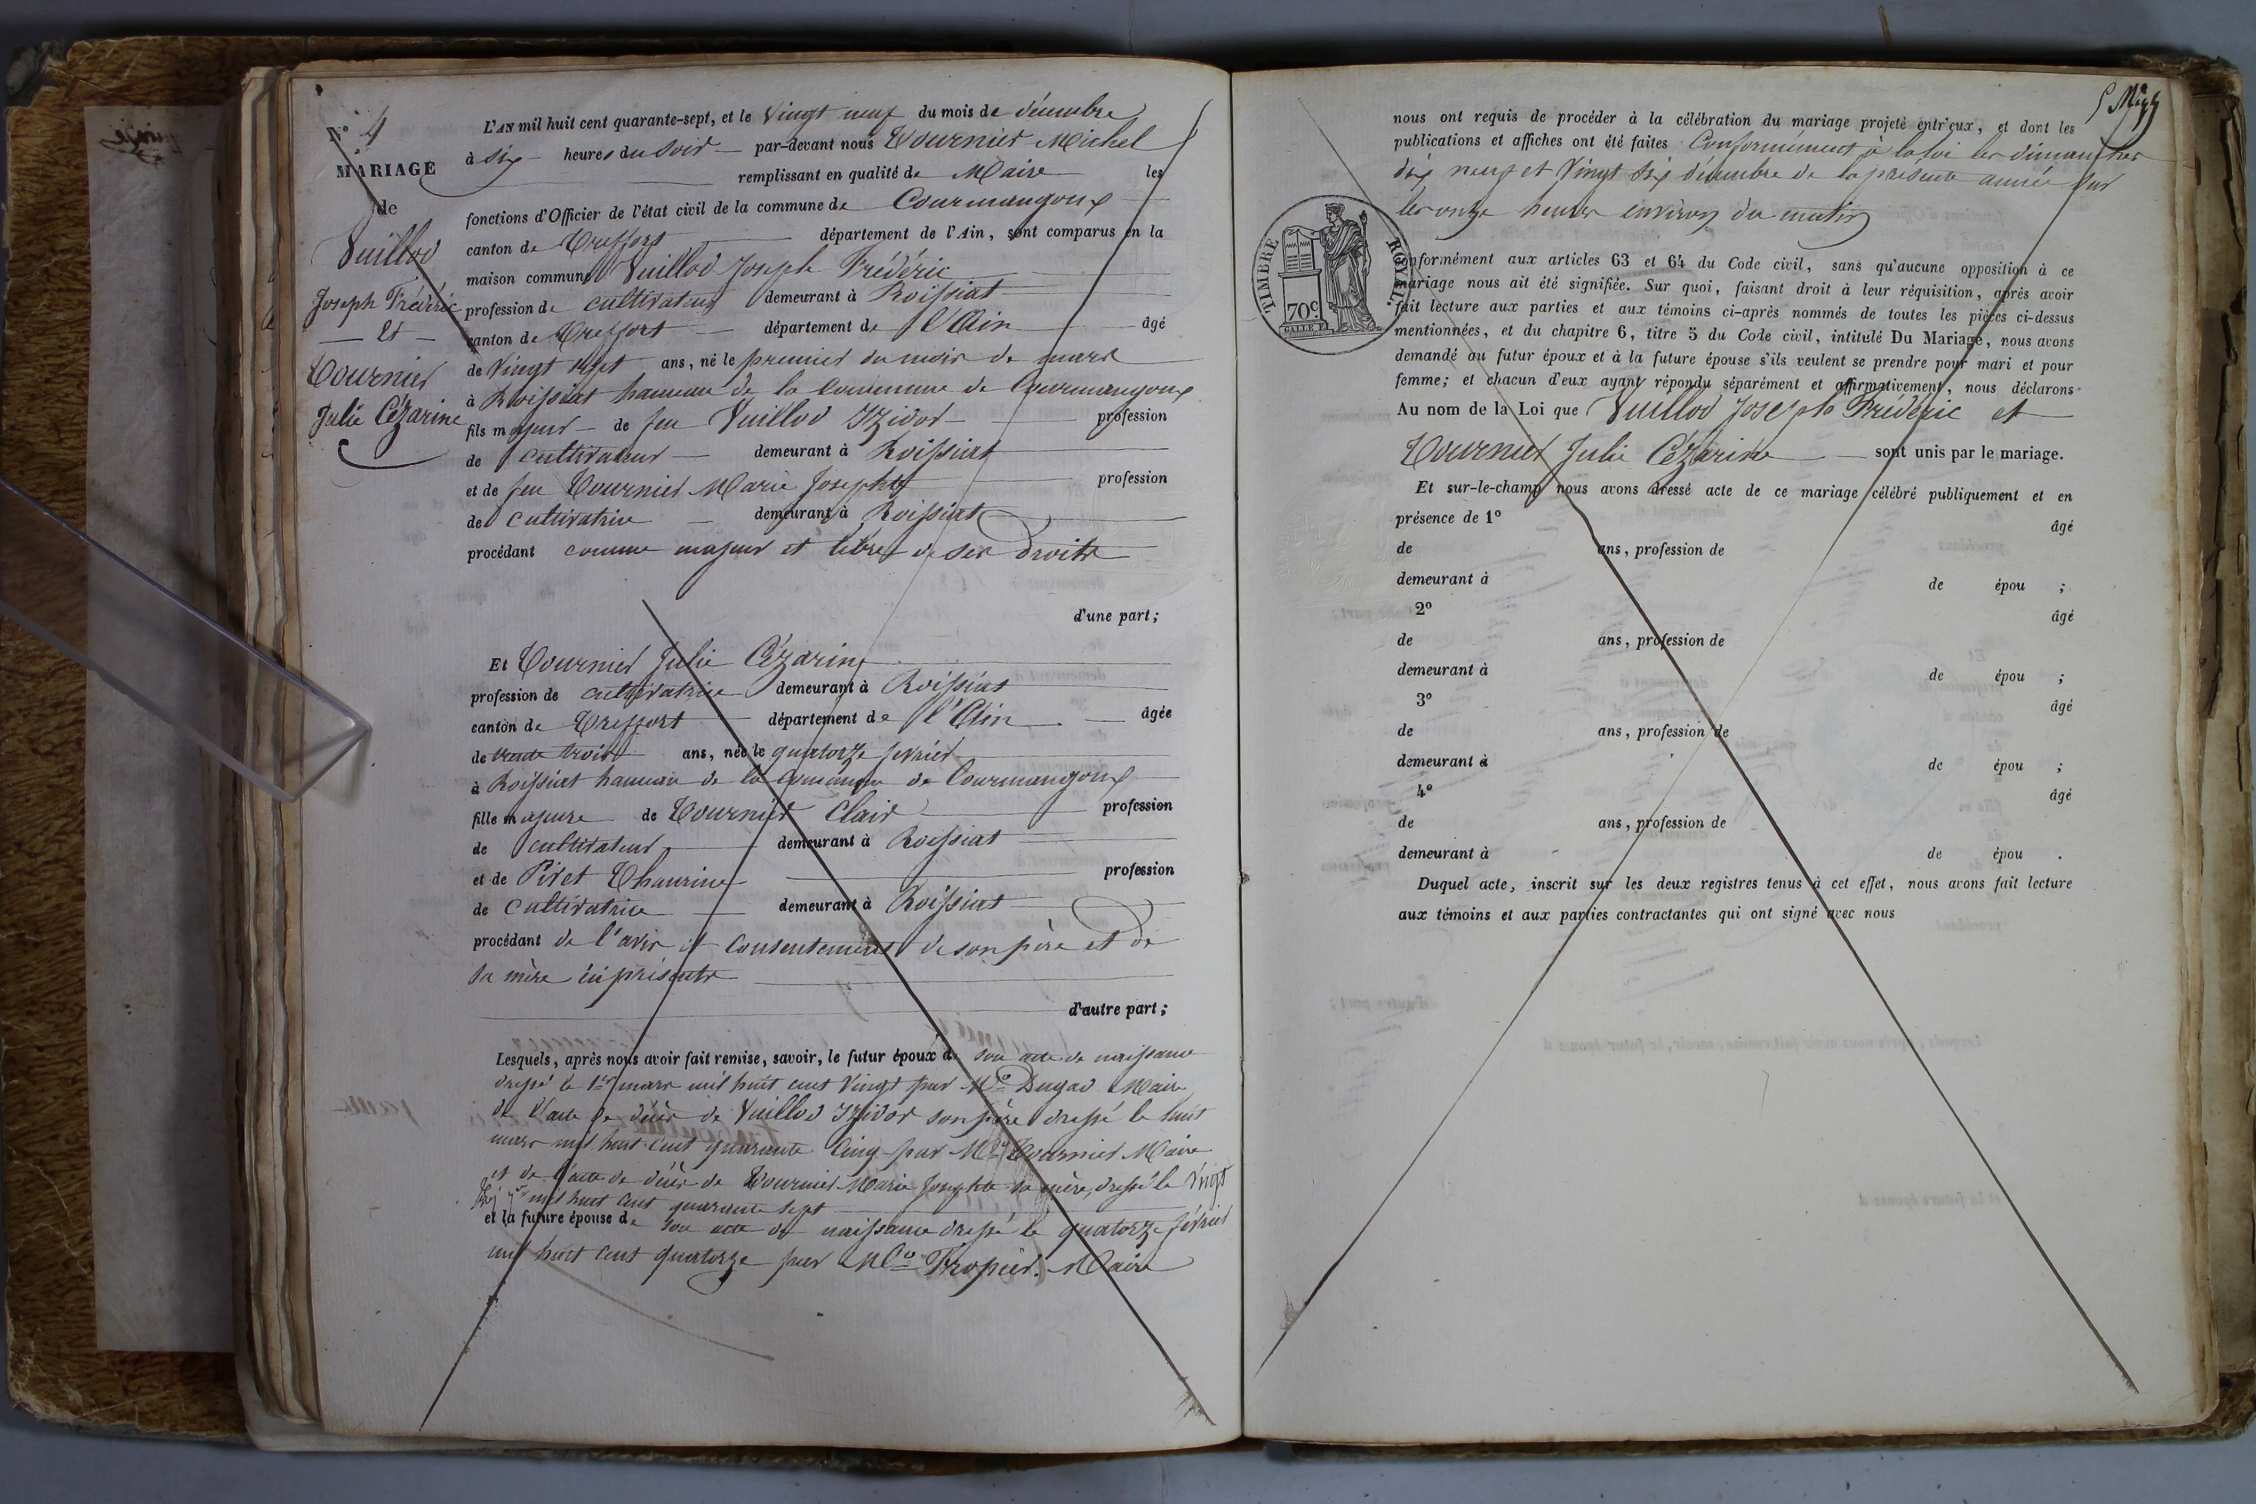 N° 4
MARIAGE
de
Vuillod
Joseph Frédéric
Et
Tournier
Julie Cézarine
L'AN mil huit cent quarante-sept, et le Vingt neuf du mois de décembre
à six heures du soir par-devant nous Tournier Michel
remplissant en qualité de Maire les
fonctions d'Officier de l'état civil de la commune de Courmangoux
canton de Treffort département de l'Ain, sont comparus en la
maison commune Vuillod Joseph Frédéric
profession de cultivateur demeurant à Roissiat
canton de Treffort département de l'Ain âgé
de Vingt sept ans, né le premier du mois de mars
à Roissiat hameau de la commune de Courmangoux
fils majeur de feu Vuillod Izidor profession
de cultivateur demeurant à Roissiat
et de feu Tournier Marie Josephte profession
de cultivatrice demeurant à Roissiat
procédant comme majeur et libre de ses droits
d'une part;
Et Tournier Julie Cézarine
profession de cultivatrice demeurant à Roissiat
canton de Treffort département de l'Ain âgée
de trente trois ans, née le quatorze fevrier
à Roissiat hameau de la commune de Courmangoux
fille majeure de Tournier Clair profession
de cultivateur demeurant à Roissiat
et de Piret Thaurine profession
de cultivatrice demeurant à Roissiat
procédant de l'avis et consentement de son père et de
sa mère ici présents
d'autre part;
Lesquels, après nous avoir fait remise, savoir, le futur époux de son acte de naissance
dressé le 1er mars mil huit cent vingt par Mr Dugad Maire
de l'acte de décès de Vuillod Izidor son père dressé le huit
mars mil huit cent quarante cinq par Mr Tournier Maire
et de l'acte de décès de Tournier Marie Josephte sa mère, dressé le vingt
mil huit cent quarante sept
et la future épouse de son acte de naissance dressé le quatorze février
mil huit cent quatorze par Mr Tropier Maire
nous ont requis de procéder à la célébration du mariage projeté entr'eux, et dont les
publications et affiches ont été faites Conformément à la loi les dimanches
dix neuf et vingt six décembre de la présente année sur
les onze heures environ du matin
TIMBRE ROYAL.
70c.
GALLE F.
conformément aux articles 63 et 64 du Code civil, sans qu'aucune opposition à ce
mariage nous ait été signifiée. Sur quoi, faisant droit à leur réquisition, après avoir
fait lecture aux parties et aux témoins ci-après nommés de toutes les pièces ci-dessus
mentionnées, et du chapitre 6, titre 5 du Code civil, intitulé Du Mariage, nous avons
demandé au futur époux et à la future épouse s'ils veulent se prendre pour mari et pour
femme; et chacun d'eux ayant répondu séparément et affirmativement, nous déclarons
Au nom de la Loi que Vuillod Joseph Frédéric et
Tournier Julie Cézarine sont unis par le mariage.
Et sur-le-champ nous avons dressé acte de ce mariage célébré publiquement et en
présence de 1° âgé
de ans, profession de
demeurant à de épou ;
2° âgé
de ans, profession de
demeurant à de épou ;
3° âgé
de ans, profession de
demeurant à de épou ;
4° âgé
de ans, profession de
demeurant à de épou .
Duquel acte, inscrit sur les deux registres tenus à cet effet, nous avons fait lecture
aux témoins et aux parties contractantes qui ont signé avec nous